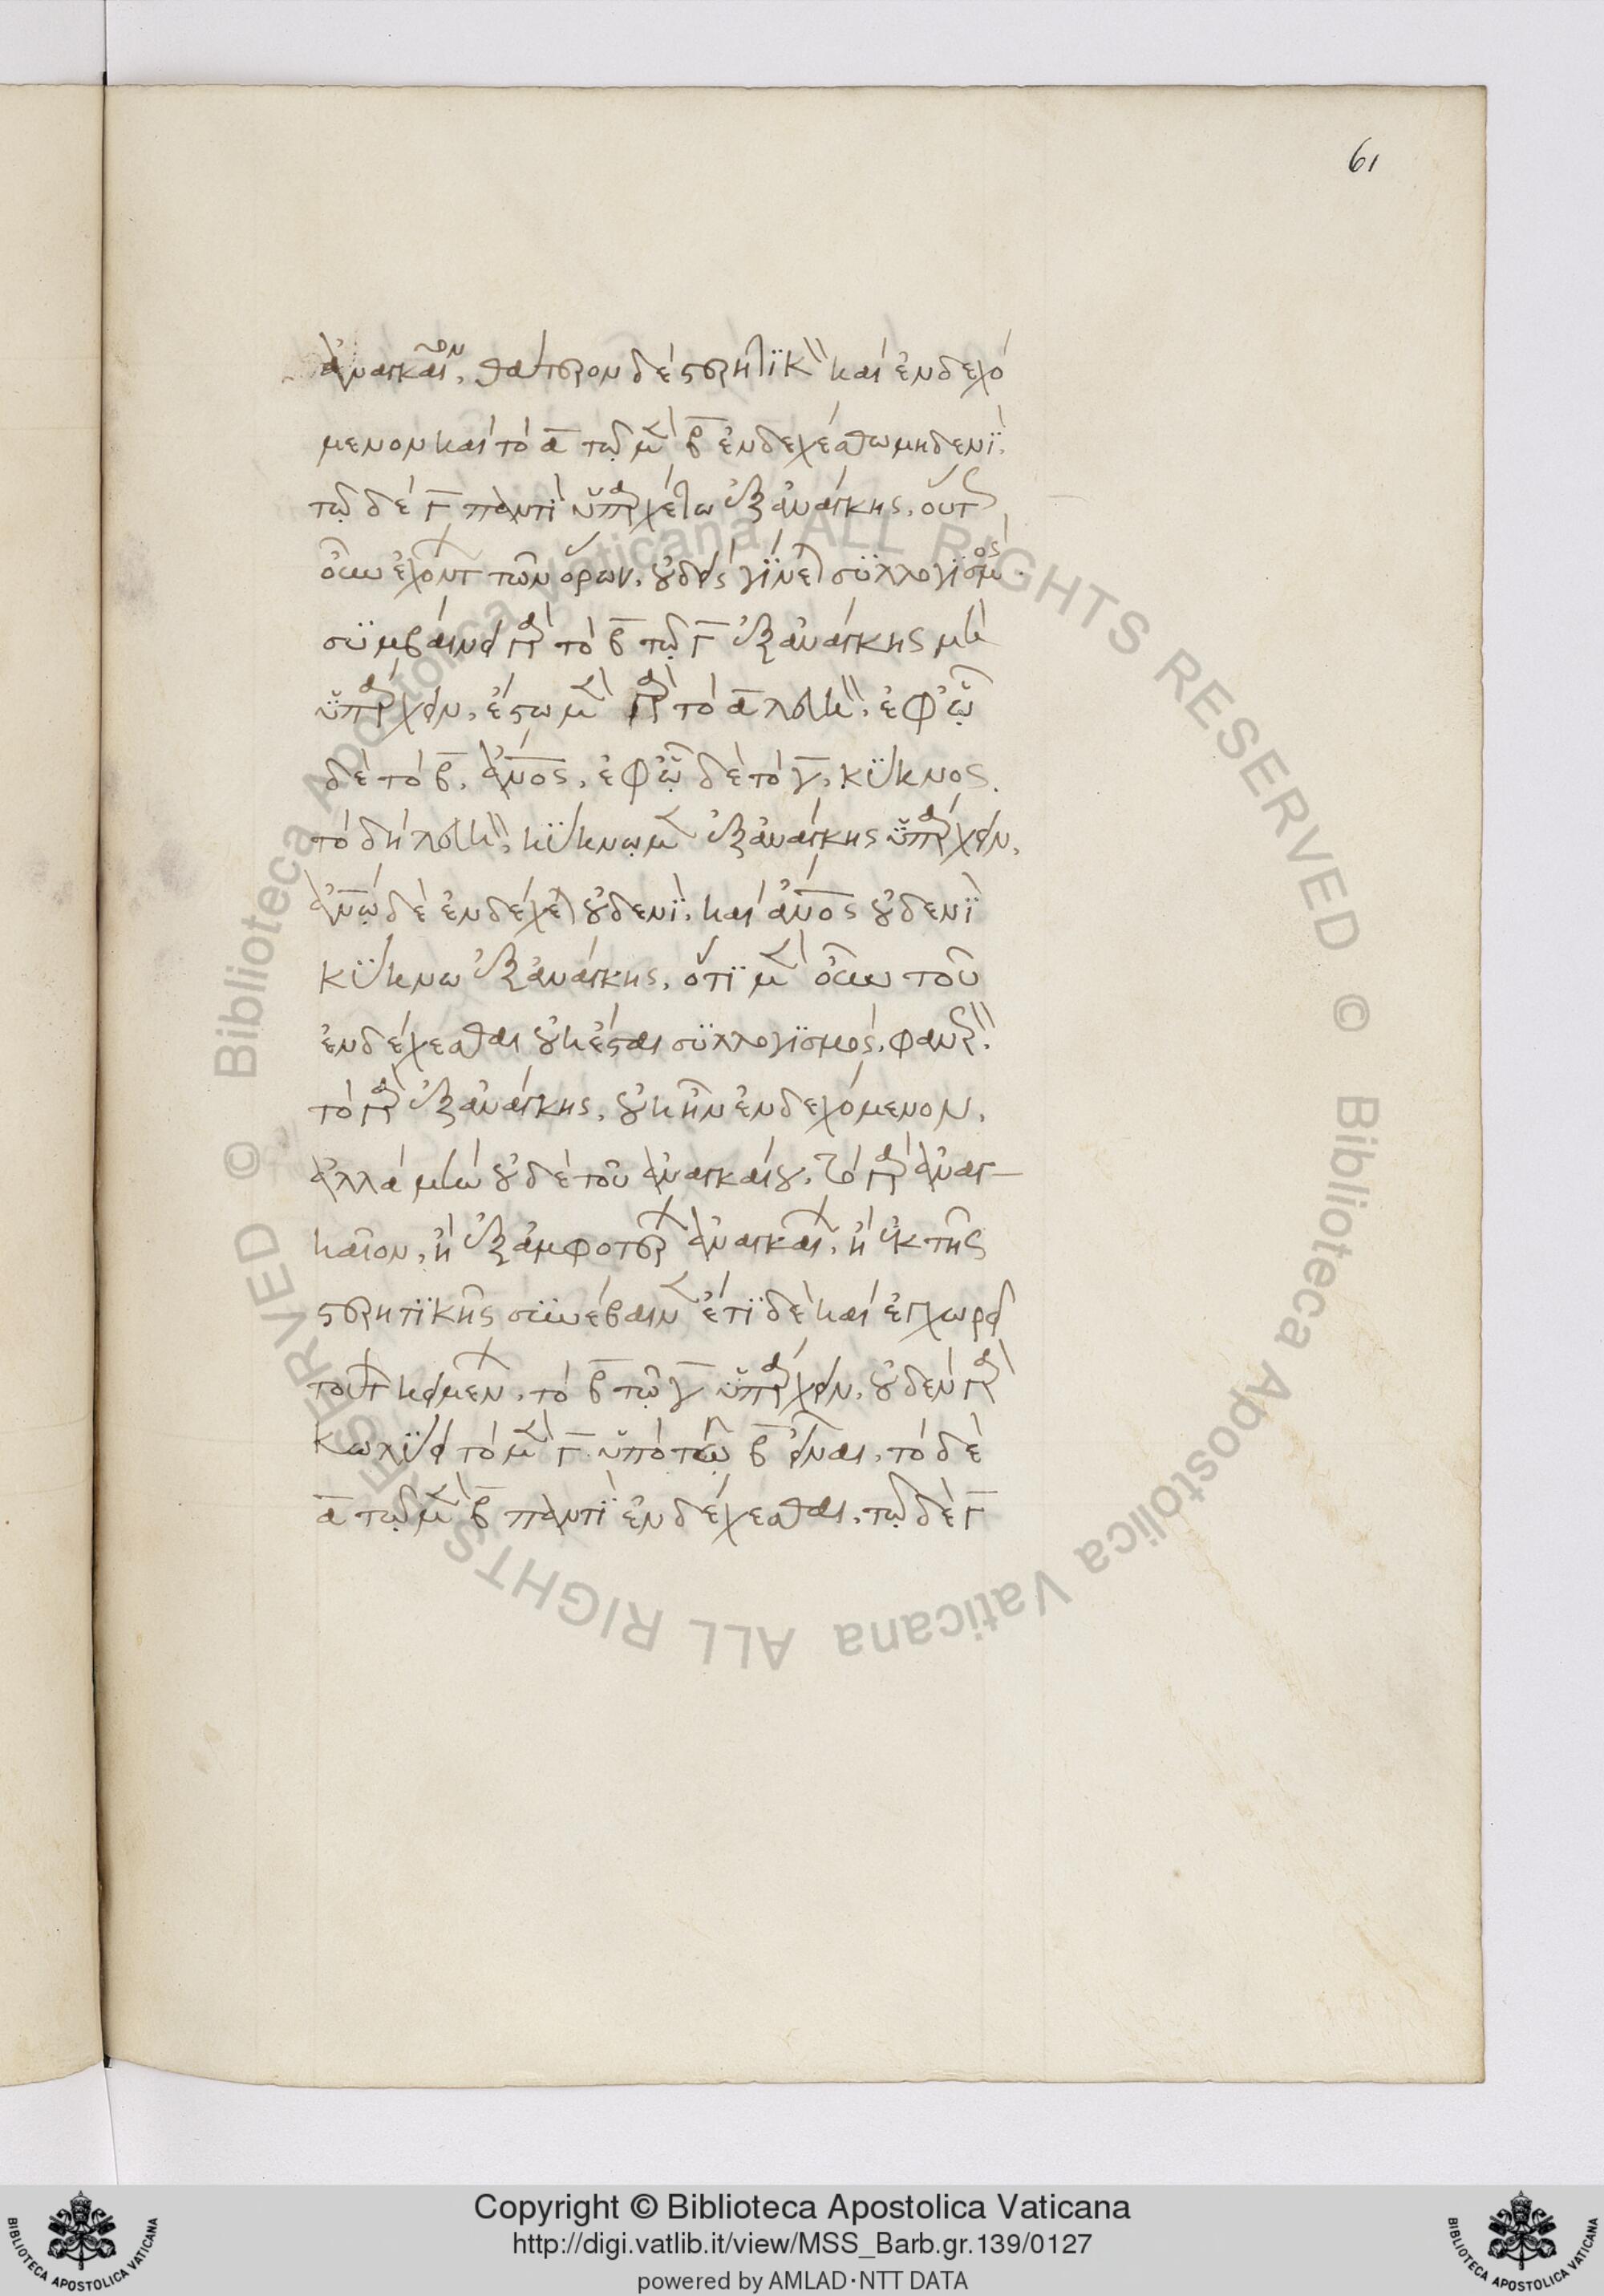 61
ἀναγκαῖον, θάτερον δὲ στερητικὸν καὶ ἐνδεχό
μενον καὶ τὸ α τῶ μὲν β ἐνδεχέσθω μηδενὶ.
τῶ δὲ γ παντὶ ὑπαρχέτω ἐξ ἀνάγκης. οὕτως
οὖν ἐχόντων τῶν ὅρων. οὐδεὶς γίνεται συλλογισμός.
συμβαίνει γὰρ τὸ β τῶ γ ἐξ ἀνάγκης μὴ
ὑπάρχειν. ἔστω μὲν γὰρ τὸ α λευκὸν. ἐφ ὧ
δὲ τὸ β, ἄνος. ἐφ ὧ δὲ τὸ γ, κύκνος.
τὸ δὴ λευκὸν, κύκνω μὲν ἐξ ἀνάγκης ὑπάρχειν.
ἀνω δὲ ἐνδέχεται οὐδενὶ. καὶ ἄνος οὐδενὶ
κύκνω ἐξ ἀνάγκης. ὅτι μὲν οὖν τοῦ
ἐνδέχεσθαι οὐκ ἔσται συλλογισμὸς, φανερὸν.
τὸ γὰρ ἐξ ἀνάγκης, οὐκ ἦν ἐνδεχόμενον.
ἀλλὰ μὴν οὐδὲ τοῦ ἀναγκαίου. τὸ γὰρ ἀναγ
καῖον, ἢ ἐξ ἀμφοτέρων ἀναγκαίων, ἢ ἐκ τῆς
στερητικῆς συνέβαινεν ἔτι δὲ καὶ ἐγχωρεῖ
τούτων κειμένων, τὸ β τῶ γ ὑπάρχειν. οὐδὲν γὰρ
κωλύει τὸ μὲν γ ὑπὸ τὸ β εἶναι, τὸ δὲ
α τῶ μὲν β παντὶ ἐνδέχεσθαι. τῶ δὲ γ
Copyright © Biblioteca Apostolica Vaticana
http://digi.vatlib.it/view/MSS_Barb.gr.139/0127
powered by AMLAD·NTT DATA
BIBLIOTECA APOSTOLICA VATICANA
BIBLIOTECA APOSTOLICA VATICANA
© Biblioteca Apostolica Vaticana ALL RIGHTS RESERVED © Biblioteca Apostolica Vaticana ALL RIGHTS RESERVED